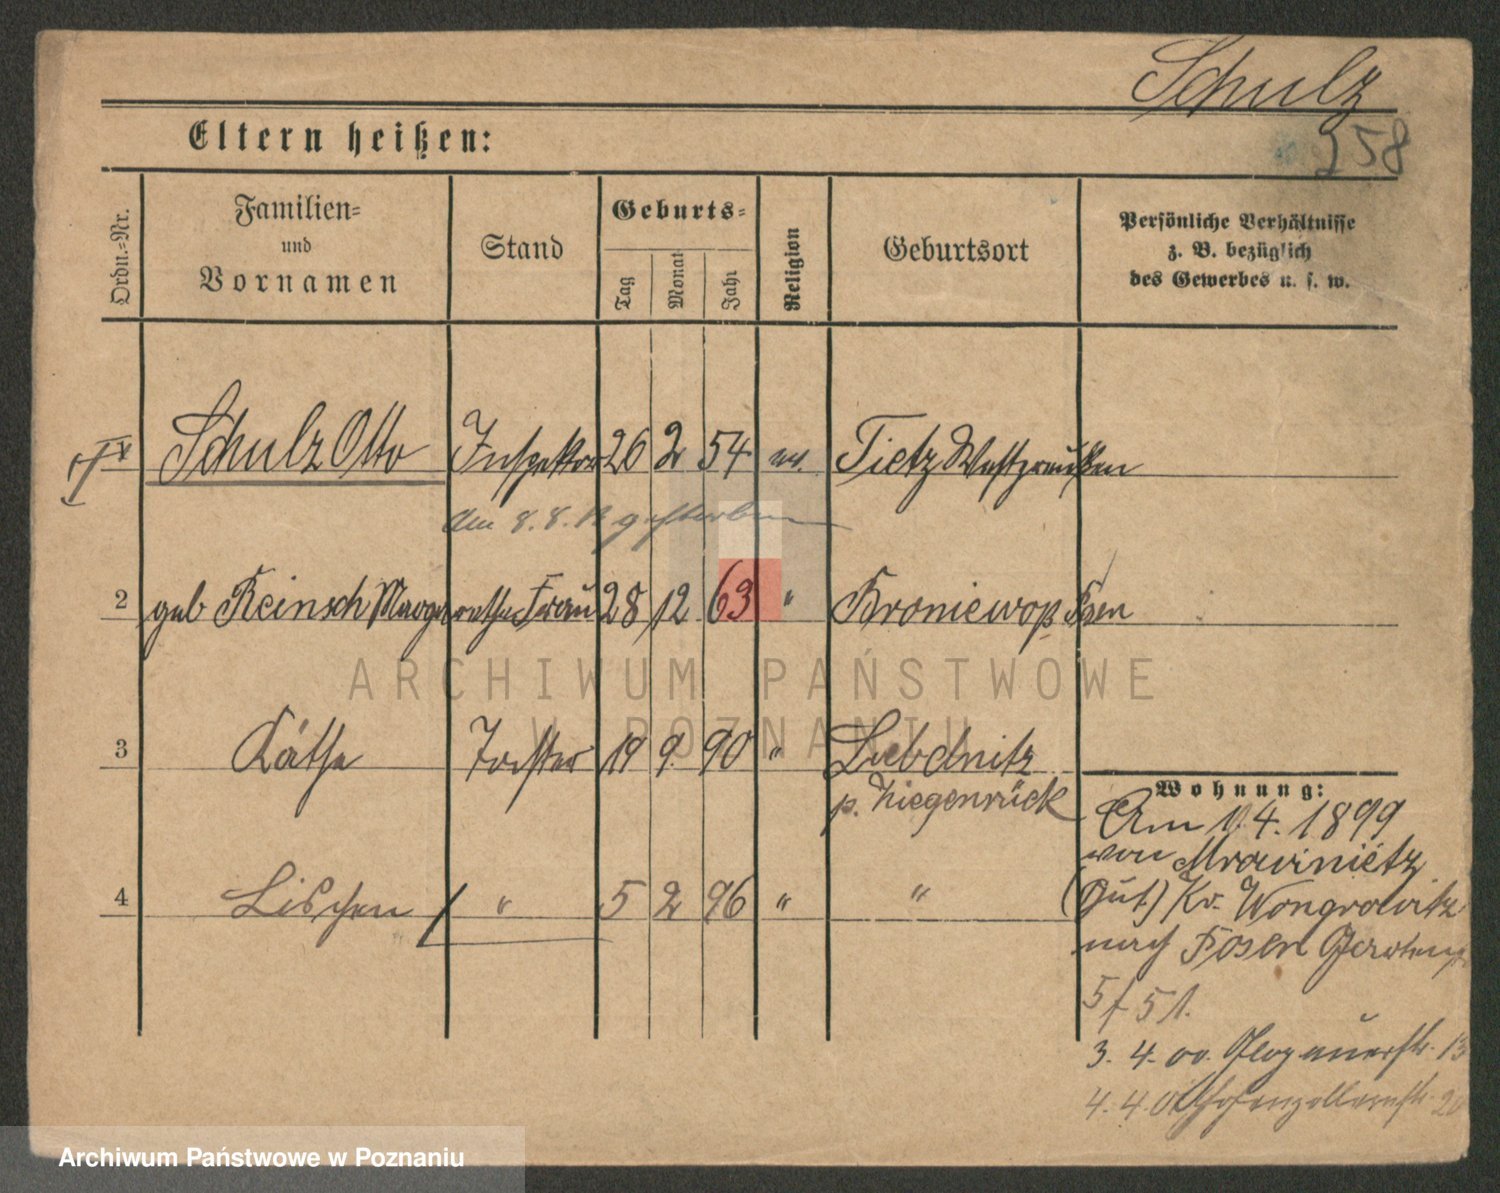 Schulz
258
Eltern heißen:
Ordn.-Nr.
Familien-
und
Vornamen
Stand
Geburts-
Tag
Monat
Jahr
Religion
Geburtsort
Persönliche Verhältnisse
z. B. bezüglich
des Gewerbes u. s. w.
Schulz Otto Inspektor 26 2 54 ev. Tietz Westpreußen
am 8. 8. gestorben
2 geb Reinsch Margarethe Frau 28 12 63 " Kroniewo Posen
3 Käthe Tochter 19 9 90 " Liebchnitz
p. Ziegenrück
4 Lischen " 5 2 96 " "
Wohnung:
Am 1. 4. 1899
von Mrowinietz
(Gut) Kr. Wongrowitz
nach Posen Gartenstr
3. 4. 00. Glogauerstr. 13
4. 4. 01 Hohenzollernstr. 20
ARCHIWUM PAŃSTWOWE
W POZNANIU
Archiwum Państwowe w Poznaniu